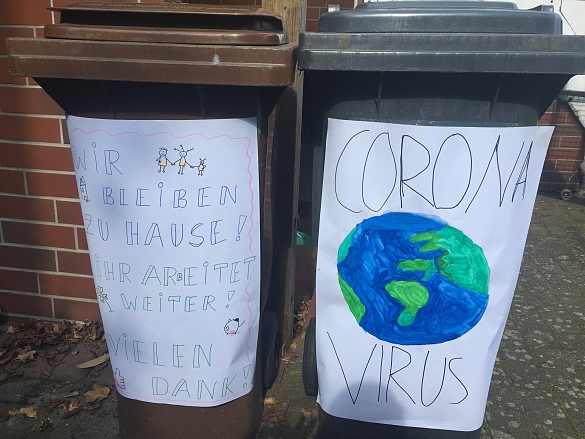 WIR
BLEIBEN
ZU HAUSE!
IHR ARBEITET
WEITER!
VIELEN
DANK!
CORONA
VIRUS